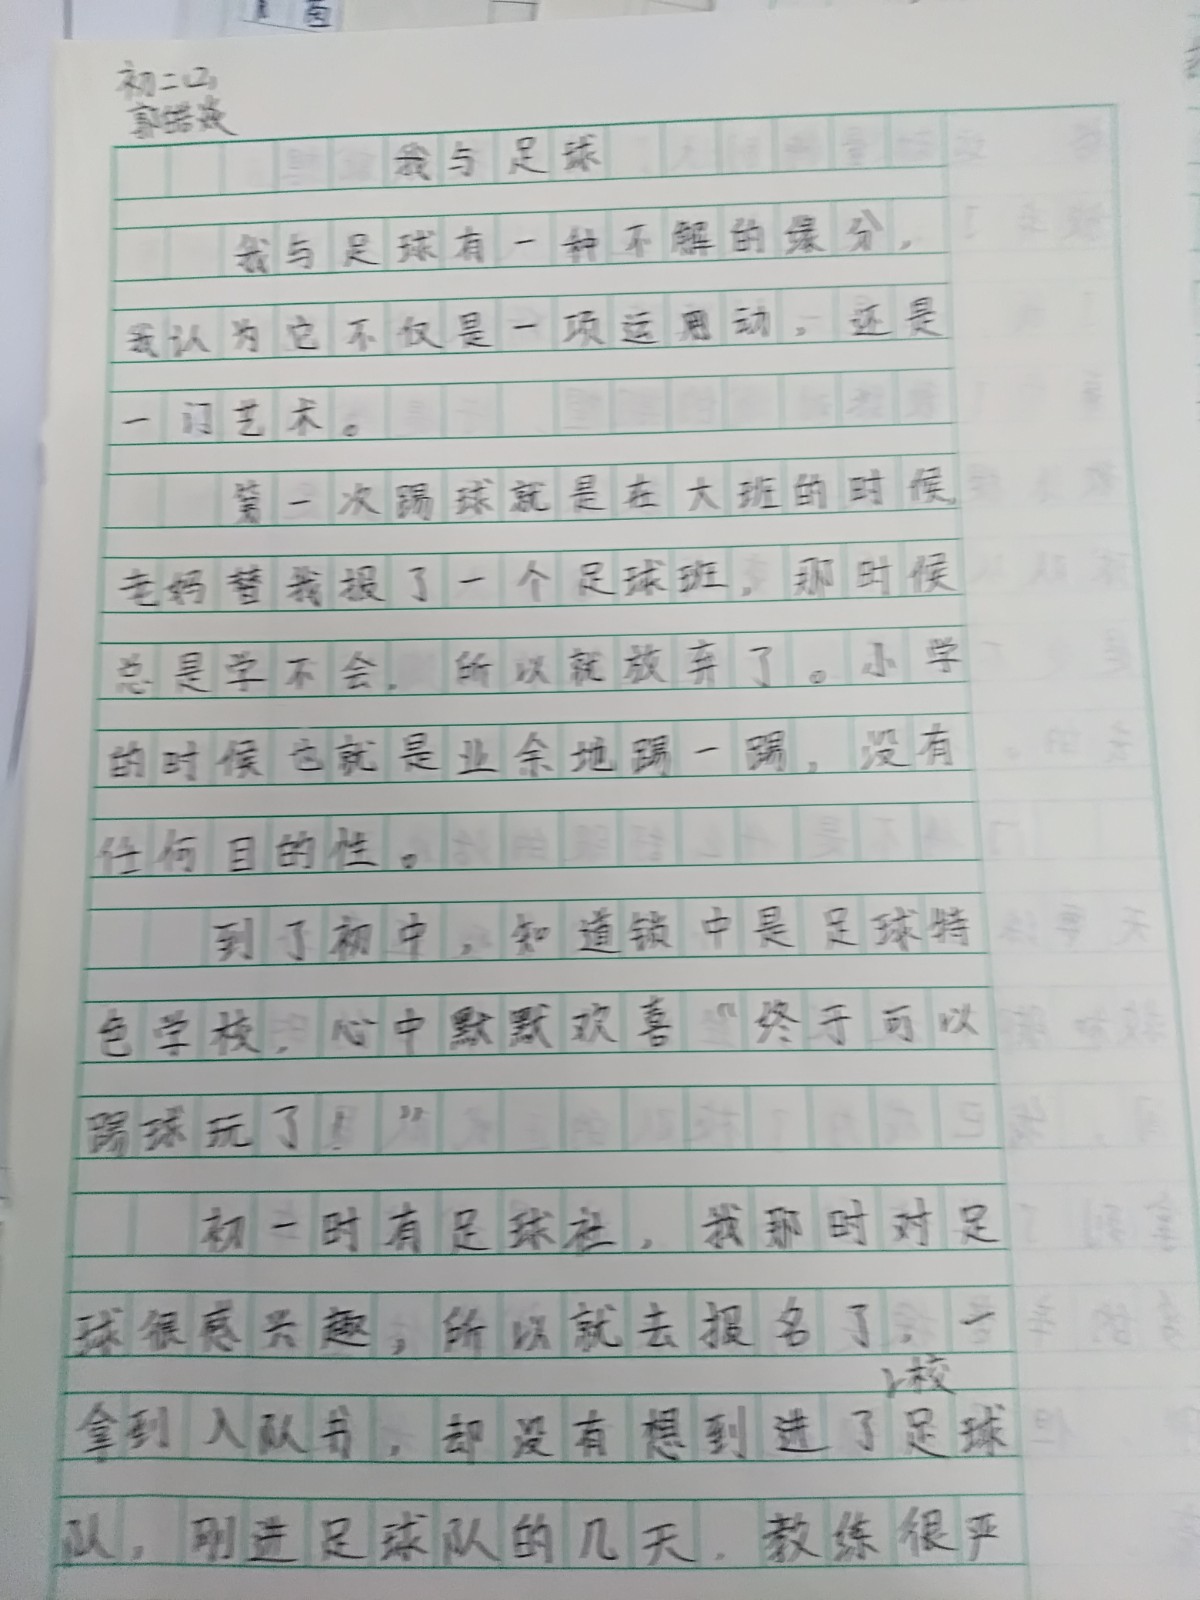 初二(2)
郭皓
我与足球
我与足球有一种不解的缘分，
我认为它不仅是一项运动，还是
一门艺术。
第一次踢球就是在大班的时候，
老妈替我报了一个足球班，那时候
总是学不会，所以就放弃了。小学
的时候也就是业余地踢一踢，没有
任何目的性。
到了初中，知道锁中是足球特
色学校，心中默默欢喜“终于可以
踢球玩了！”
初一时有足球社，我那时对足
球很感兴趣，所以就去报名了，一
拿到入队书，却没有想到进了校足球
队，刚进足球队的几天，教练很严